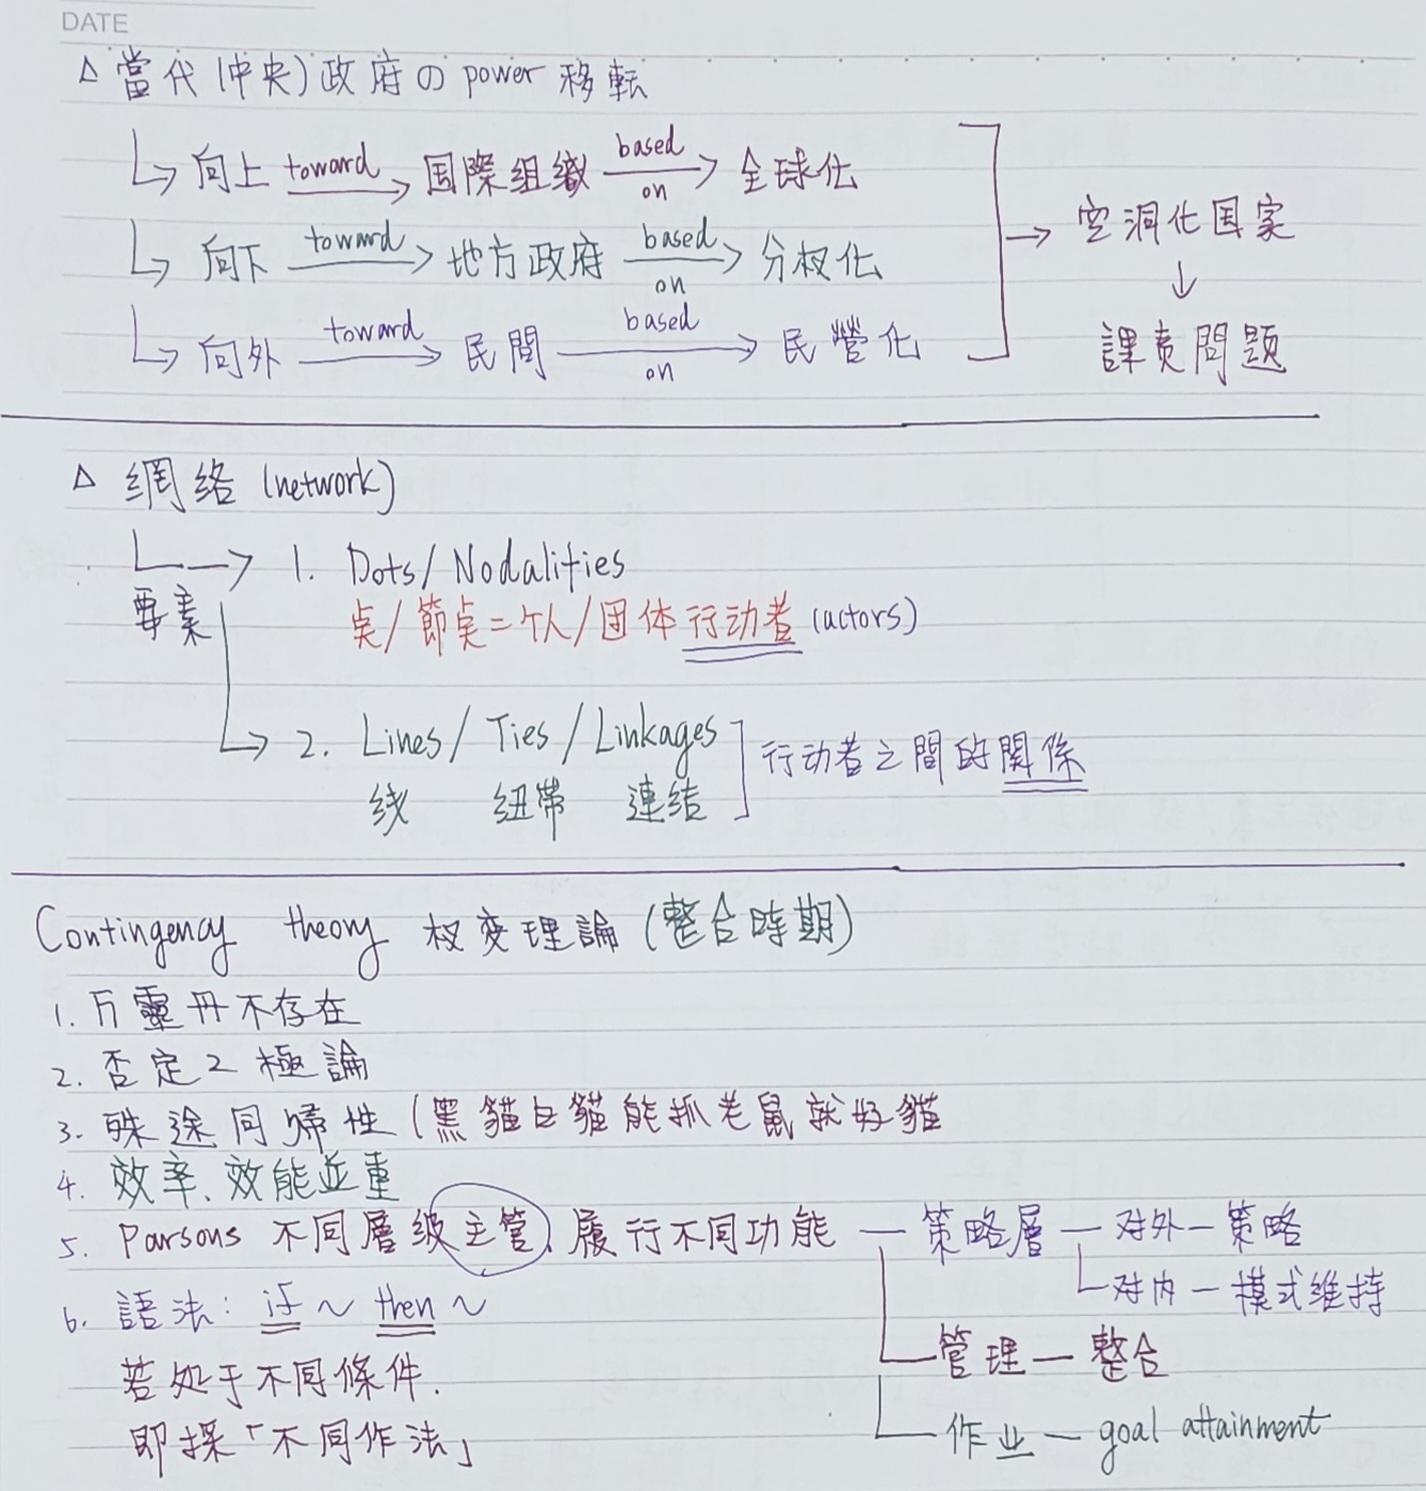 DATE
△ 當代(中央)政府の power 移転
向上 toward 国際組織 based on 全球化
向下 toward 地方政府 based on 分权化
向外 toward 民間 based on 民營化
空洞化国家
課責問題
△ 網絡 (network)
要素
1. Dots/Nodalities
奌/節奌=个人/团体行动者 (actors)
2. Lines/Ties/Linkages
线 纽帶 連結
行动者之間的関係
Contingency theory 权变理論 (整合時期)
1. 万靈丹不存在
2. 否定2極論
3. 殊途同帰性 (黑貓白貓能抓老鼠就好貓
4. 效率、效能並重
5. Parsons 不同層級主管, 履行不同功能 — 策略層 — 对外 — 策略
对内 — 模式維持
管理 — 整合
作业 — goal attainment
6. 語法: if ~ then ~
若处于不同條件.
即採「不同作法」